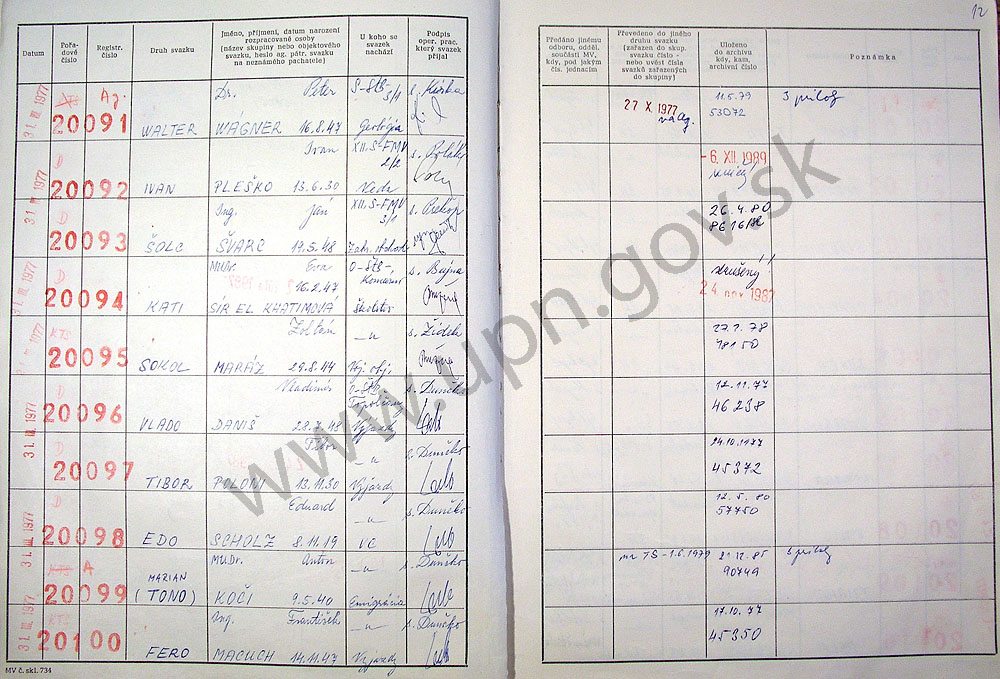 12
Datum
Pořa-
dové
číslo
Registr.
číslo
Druh svazku
Jméno, příjmení, datum narození
rozpracované osoby
(název skupiny nebo objektového
svazku, heslo ag. pátr. svazku
na neznámého pachatele)
U koho se
svazek
nachází
Podpis
oper. prac.
který svazek
přijal
Předáno jinému
odboru, odděl.
součásti MV,
kdy, pod jakým
čís. jednacím
Převedeno do jiného
druhu svazku
(zařazen do skup.
svazku číslo -
nebo uvést čísla
svazků zařazených
do skupiny)
Uloženo
do archívu
kdy, kam,
archívní číslo
Poznámka
31. III. 1977
20091
Ag.
WALTER
Dr. Peter
WÁGNER 16.8.47
S-ŠtB
3/1
Geológia
27 X. 1977
na Ag.
11.5.79
53072
3 príloh
31. III. 1977
D
20092
IVAN
Ivan
PLEŠKO 13.6.30
XII.S-FMV
2/2
Veda
- 6. XII. 1989
31. III. 1977
D
20093
ŠOLC
Ing. Ján
ŠVARC 19.5.48
XII.S-FMV
3/1
s. Prekop
26.4.80
31. III. 1977
D
20094
KATI
MUDr. Eva
16.2.47
SIR EL KHATIMOVÁ
O-ŠtB-
Komárno
Školstvo
s. Bujna
zrušený
24 nov 1987
31. III. 1977
KTS
20095
SOKOL
Zoltán
MARÁZ 29.8.44
-"-
Voj. obj.
s. Židek
48150
31. III. 1977
D
20096
VLADO
Vladimír
DANIŠ
O-ŠtB
Topoľčany
Výjazdy
s. Dunčko
12.11.77
46238
31. III. 1977
D
20097
TIBOR
Tibor
POLONI 13.11.30
-"-
Výjazdy
s. Dunčko
24.10.1977
45372
31. III. 1977
D
20098
EDO
Eduard
SCHOLZ 8.11.19
-"-
VC
s. Dunčko
12.5.80
57750
31. III. 1977
A
20099
MARIAN
(TONO)
MUDr. Anton
KOČI 9.5.40
-"-
Emigrácia
s. Dunčko
na TS -1.6.1979
21.12.85
90749
3 príloh
31. III. 1977
KTS
20100
FERO
Ing. František
MACUCH 14.11.47
-"-
Výjazdy
s. Dunčko
17.10.77
45350
MV č. skl. 734
www.upn.gov.sk